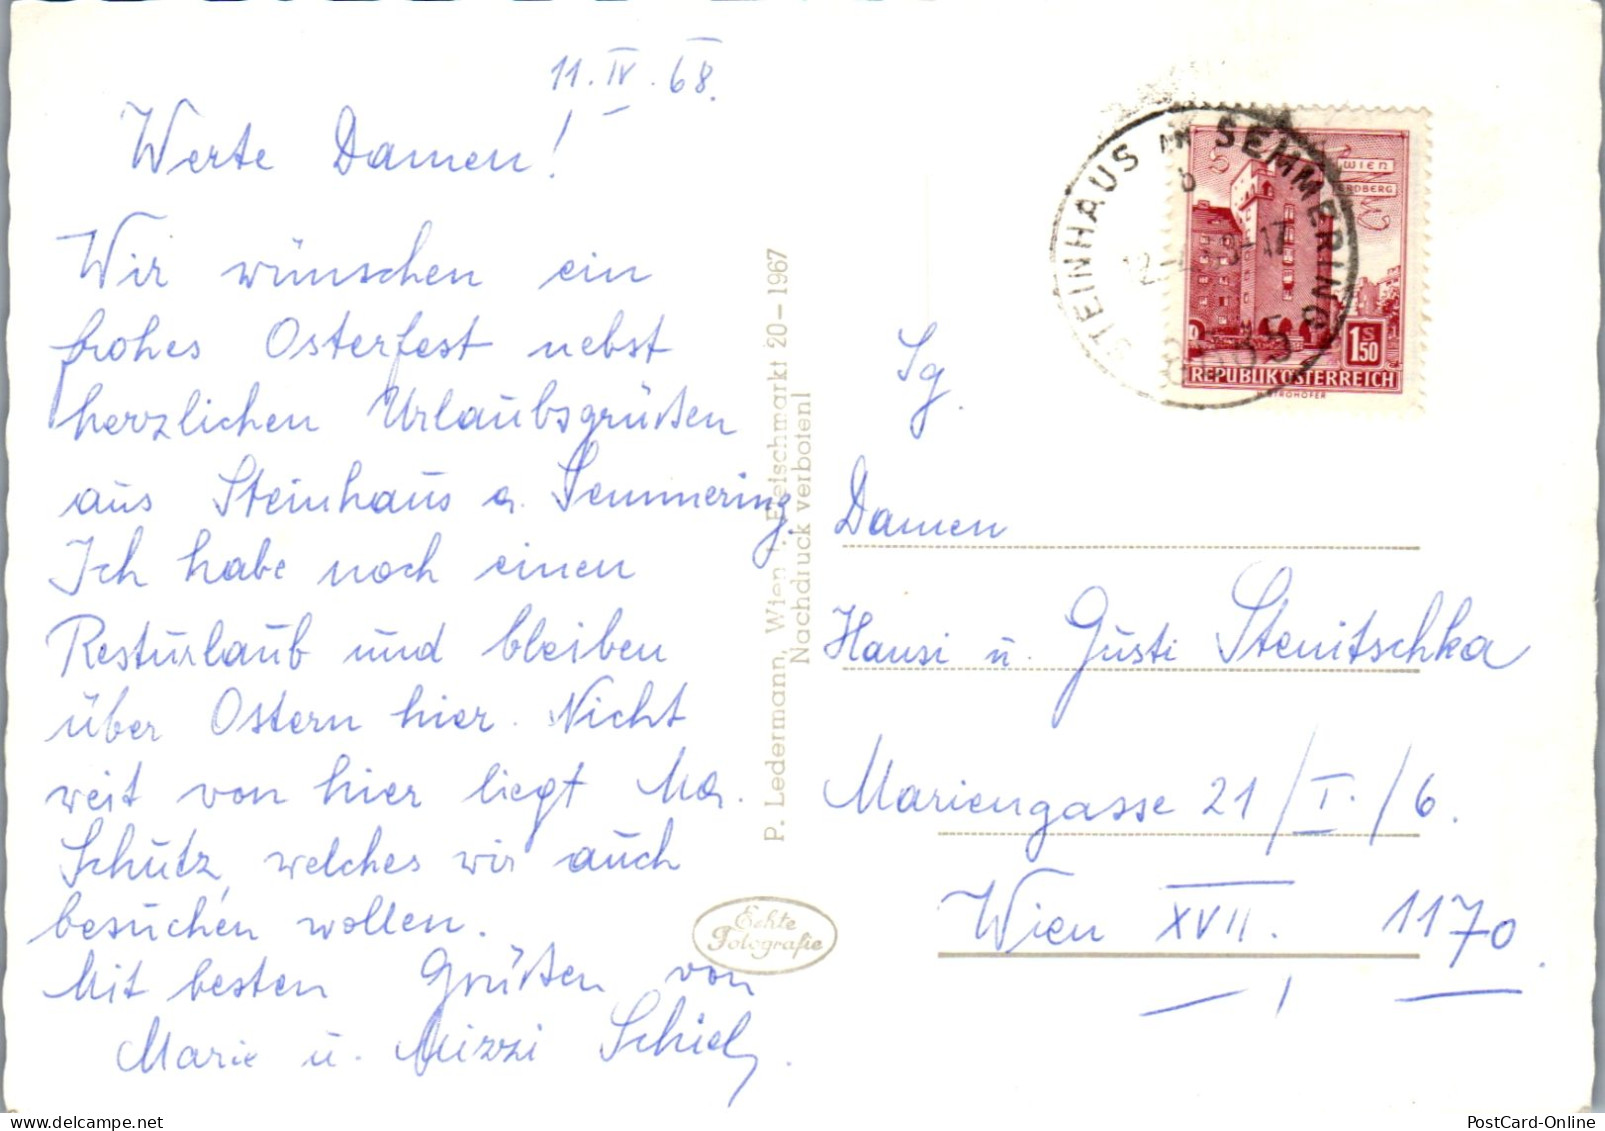 11. IV. 68.
Werte Damen!
Wir wünschen ein
frohes Osterfest nebst
herzlichen Urlaubsgrüßen
aus Steinhaus a. Semmering.
Ich habe noch einen
Resturlaub und bleiben
über Ostern hier. Nicht
weit von hier liegt Ma.
Schutz, welches wir auch
besuchen wollen.
Mit besten Grüßen von
Marie u. Mizzi
P. Ledermann, Wien I, Fleischmarkt 20–1967
Nachdruck verboten!
Echte
Fotografie
STEINHAUS AM SEMMERING
b
WIEN
ERDBERG
1 S
50
REPUBLIK ÖSTERREICH
Sg.
Damen
Hansi u. Gusti Stenitschka
Mariengasse 21/I./6.
Wien XVII. 1170.
PostCard-Online